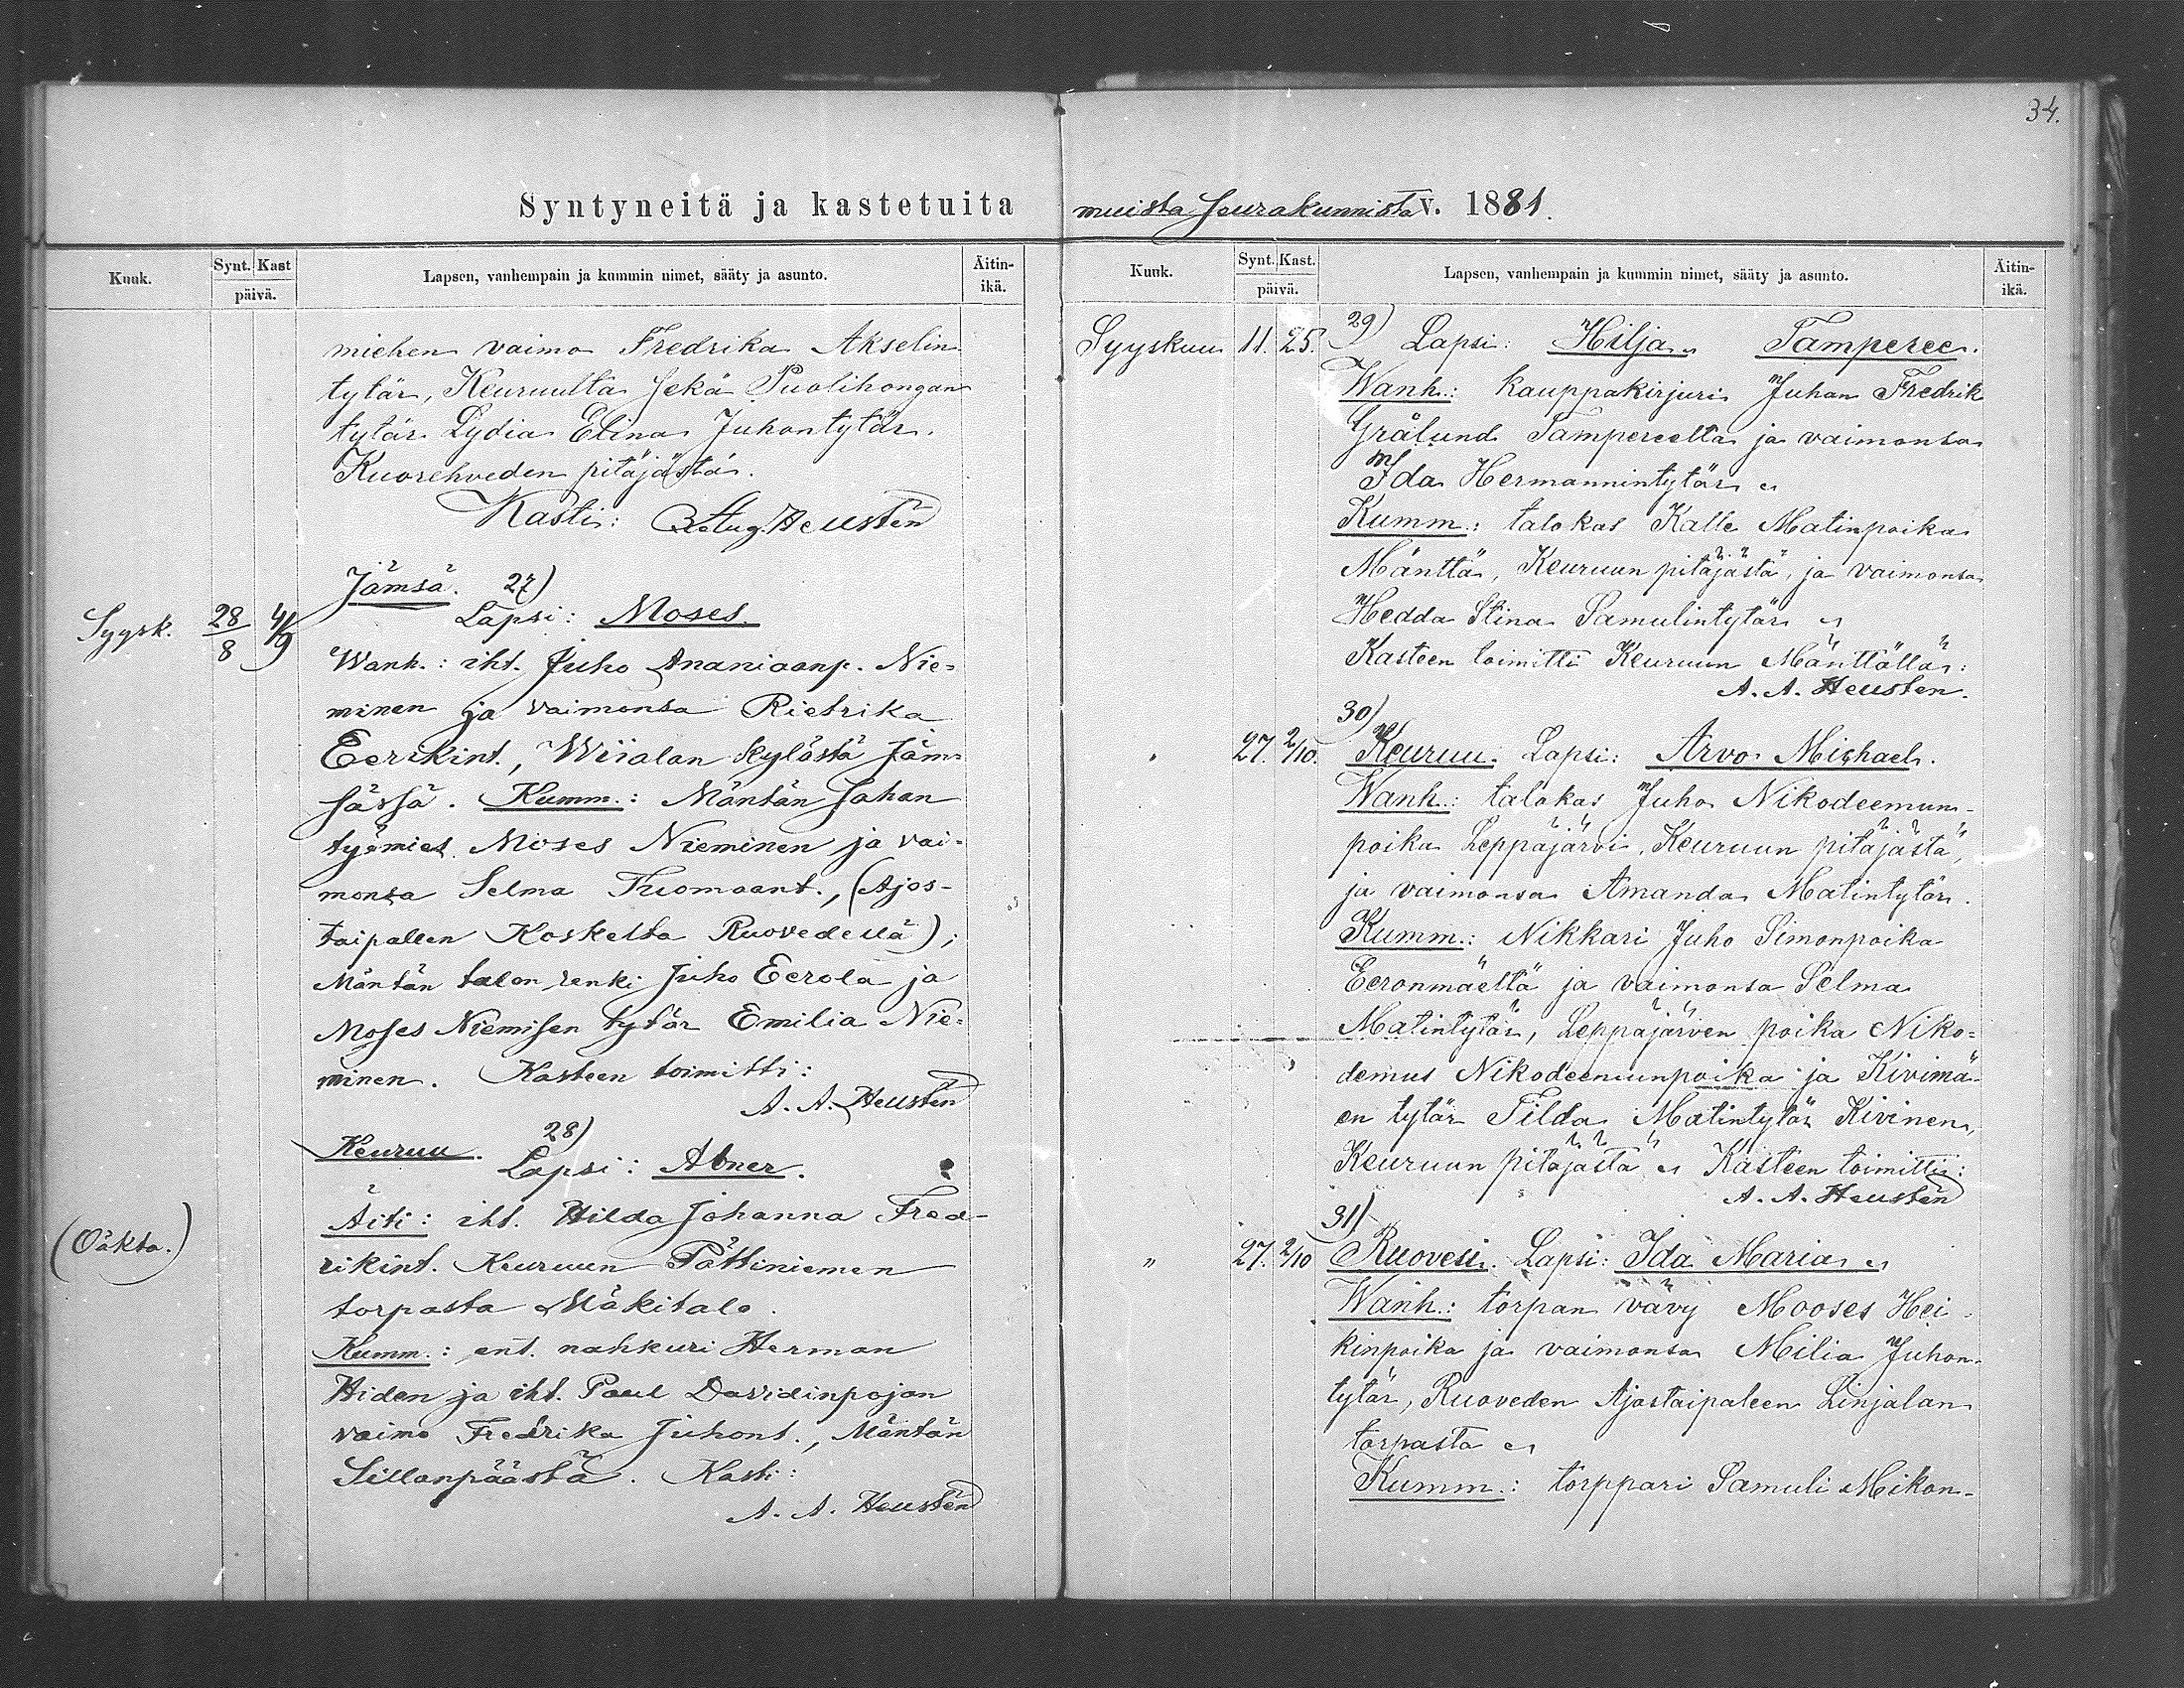 34.
Syntyneitä ja kastetuita muista seurakunnista v. 1881.
Kuuk. Synt. Kast päivä. Lapsen, vanhempain ja kummin nimet, sääty ja asunto. Äitin-ikä.
miehen vaimo Fredrika Akselin
tytär, Keuruulta sekä Puolihongan
tytär Lydia Elina Juhontytär.
Kuorehveden pitäjästä.
Kasti: Aug. Heustén
Jämsä. 27)
Lapsi: Moses.
Syysk. 28/8 4/9
Wanh.: iht. Juho Ananiaanp. Nie-
minen ja vaimonsa Rietrika
Eerikint., Wiialan kylästä Jäm-
sässä. Kumm.: Mäntän sahan
työmies Moses Nieminen ja vai-
monsa Selma Tuomaant., (Ajos-
taipaleen Koskelta Ruovedellä);
Mäntän talon renki Juho Eerola ja
Moses Niemisen tytär Emilia Nie-
minen. Kasteen toimitti:
A. A. Heustén
Keuruu. 28)
Lapsi: Abner.
(Oäkta.)
Äiti: iht. Hilda Johanna Fred-
rikint. Keuruun Pättiniemen
torpasta Mäkitalo.
Kumm.: ent. nahkuri Herman
Hiden ja iht. Paul Davidinpojan
vaimo Fredrika Juhont., Mäntän
Sillanpäästä. Kasti:
A. A. Heustén
Kuuk. Synt. Kast. päivä. Lapsen, vanhempain ja kummin nimet, sääty ja asunto. Äitin-ikä.
Syyskuu 11. 25. 29) Lapsi: Hilja Tamperee.
Wanh.: kauppakirjuri Juhan Fredrik
Grälund Tampereelta ja vaimonsa
Ida Hermannintytär
Kumm.: talokas Kalle Matinpoika
Mänttä, Keuruun pitäjästä, ja vaimonsa
Hedda Stina Samulintytär
Kasteen toimitti Keuruun Mänttällä:
A. A. Heusten.
30)
" 27. 2/10. Keuruu. Lapsi: Arvo Michael.
Wanh.: talokas Juho Nikodeemun-
poika Leppäjärvi, Keuruun pitäjästä,
ja vaimonsa Amanda Matintytär.
Kumm.: Nikkari Juho Simonpoika
Eeronmäeltä ja vaimonsa Selma
Matintytär, Leppäjärven poika Niko-
demus Nikodeemunpoika ja Kivimä-
en tytär Tilda Matintytär Kivinen,
Keuruun pitäjästä Kasteen toimitti:
A. A. Heustén
31)
" 27. 2/10 Ruovesi. Lapsi: Ida Maria
Wanh.: torpan vävy Mooses Hei-
kinpoika ja vaimonsa Milia Juhon-
tytär, Ruoveden Ajostaipaleen Linjalan
torpasta
Kumm.: torppari Samuli Mikon-